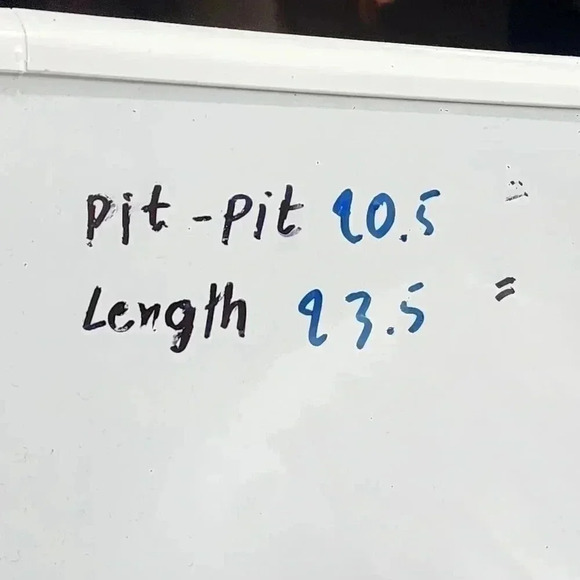 Pit-Pit 20.5 "
Length 23.5 "